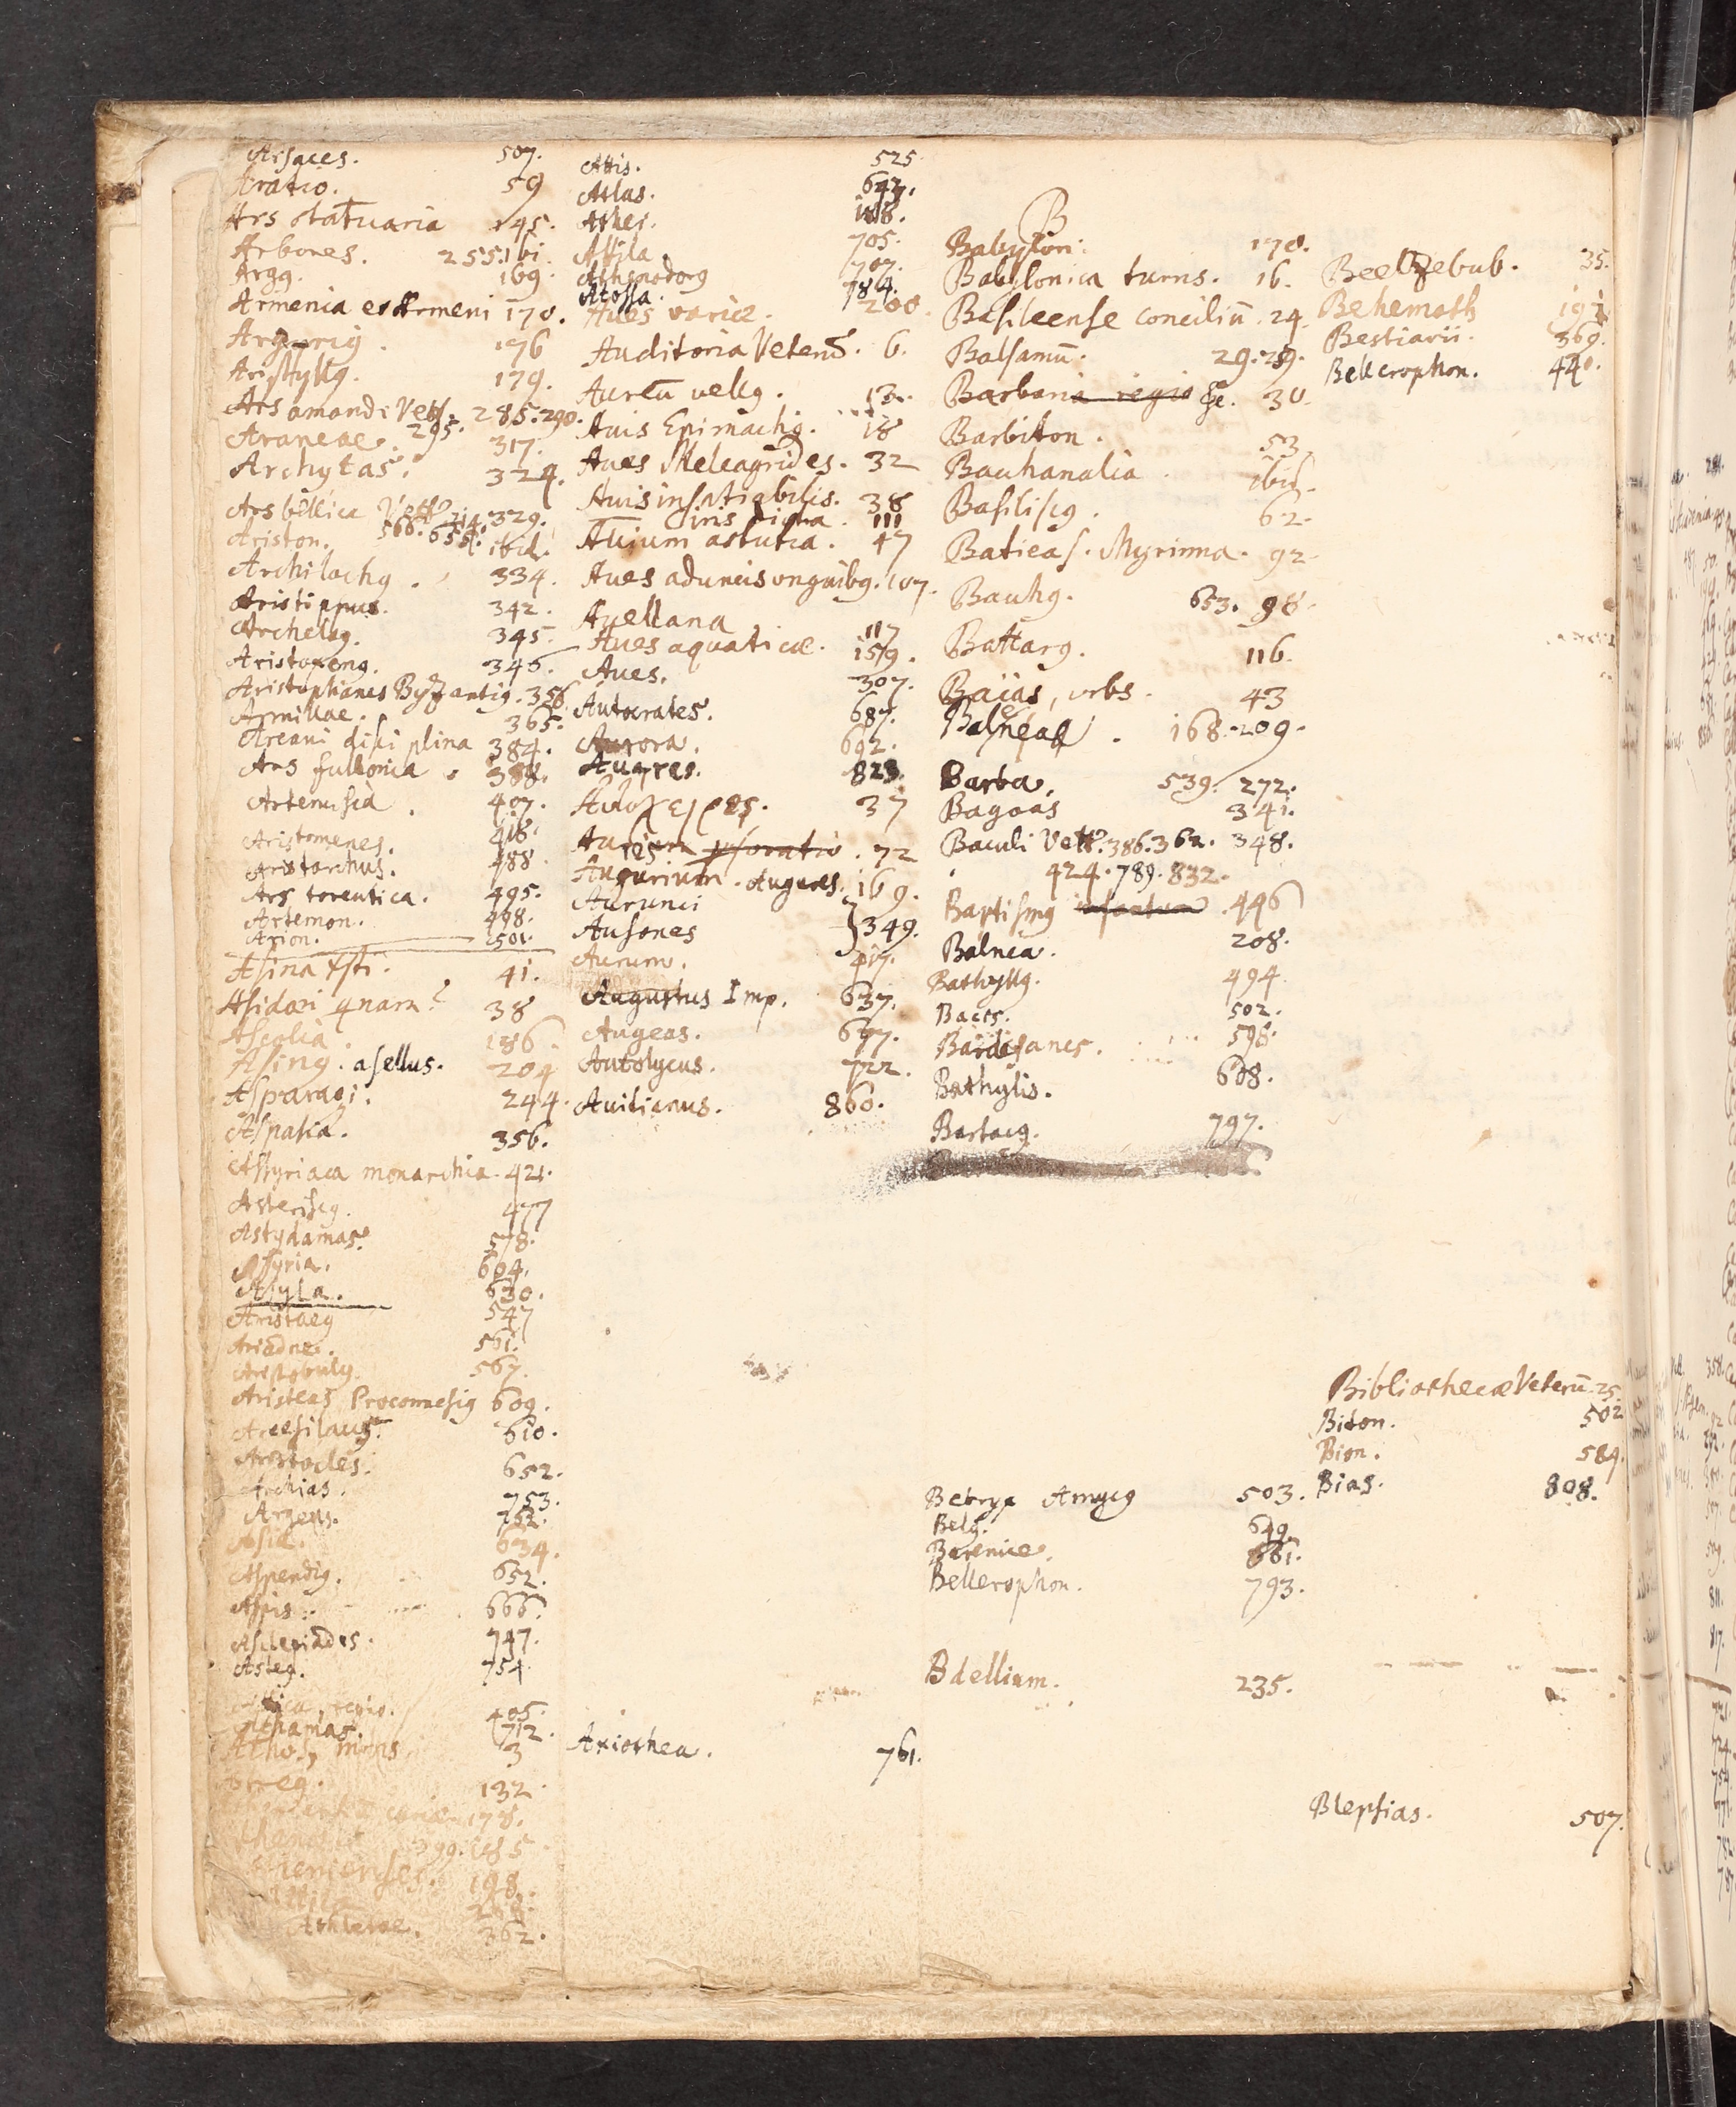 Arsaces. 507.
Aratio. 59
Ars statuaria 145.
Arbores. 255. ibi.
Argg. 169.
Armenia et Armeni 170.
176
Aristyllg. 179.
Ars amandi Vett. 285. 290.
295.
Araneae. 317.
Archytas. 324.
Ars bellica Vett. 214. 329.
566. 655.
Ariston. ibid.
Archilochg. 334.
Aristippus. 342.
Archelag. 345.
Aristoxeng. 346.
Aristophanes Byzantig. 356.
Armillae. 365.
Arcani disciplina 384.
Ars fullonia. 388.
Artemisia. 407.
Aristomenes. 418.
Aristarchus. 488.
Ars toreutica. 495.
Artemon. 498.
Arion. 501.
Asina 41.
38
Ascolia. 186.
Asing. asellus. 204
Asparagi. 244.
Aspasia. 356.
Assyriaca monarchia. 421.
Asteriscg. 477
Astydamas. 578.
Assyria. 604.
Asyla. 630.
Aristaeg 547
Ariadne. 561.
Aristobulg. 567.
Aristeas Proconnesig 609.
Arcesilaus. 610.
Aristocles. 652.
Archias. 753.
Argeus. 752.
Asia. 634.
Aspendig. 652.
Aspis. 666.
Asclepiades. 747.
Asteg. 754.
Attica, regio. 405.
Athamas. 712.
Athos, mons 3
132.
178.
399. 185
Athenienses. 198.
Athletae. 362.
Attis. 525.
Atlas. 647.
188.
Attila. 705.
Athenodorg 707.
Atossa. 784.
Aues variae. 200.
Auditoria Veterū. 6.
Aureū vellg. 13.
Auis Epimachg. 18
Aues Meleagrides. 32
Auis insatiabilis. 38
111
Auium astutia. 47
Aues aduncis ungvibg. 107.
Avellana 117
Aues aquaticae. 159.
Aues. 307.
Autocrates. 687.
Aurora. 692.
Augres. 823.
Αυτοχειρες. 37
72
Augurium. Augures. 169.
Aurunci
Ausones } 349.
Aurum. 417.
Augustus Imp. 637.
Augeas. 697.
Autolycus. 722.
Avitianus. 860.
Axiothea. 761.
B
Babylon: 170.
Babylonica turris. 16.
Basileense conciliū. 24.
Balsamū. 29. 259.
Barbaria regio 30.
Barbiton. 53.
Bachanalia. ibid.
Basiliscg. 62.
Batieas. Myrinna. 92.
Bauhg. 653. 98.
Battarg. 116.
Baias, urbs. 43
Balneae. 168. 209.
Barba. 539. 272.
Bagoas 341.
Baculi Vett. 386. 362. 348.
424. 789. 832.
Baptismg infantum 496
Balnea. 208.
Bathyllg. 494
Bacis. 502.
Bardesanes. 598.
Bathylis. 608.
Bartacg. 797.
Bebryx Amycg 503.
Belg. 649.
Berenice. 661.
Bellerophon. 793.
Bdellium. 235.
Beelzebub. 35.
Behemoth 191
Bestiarii. 369.
Bellerophon. 440.
Bibliothecae Veterū 25.
Biton. 502
Bion. 584.
Bias. 808.
Blepsias. 507.